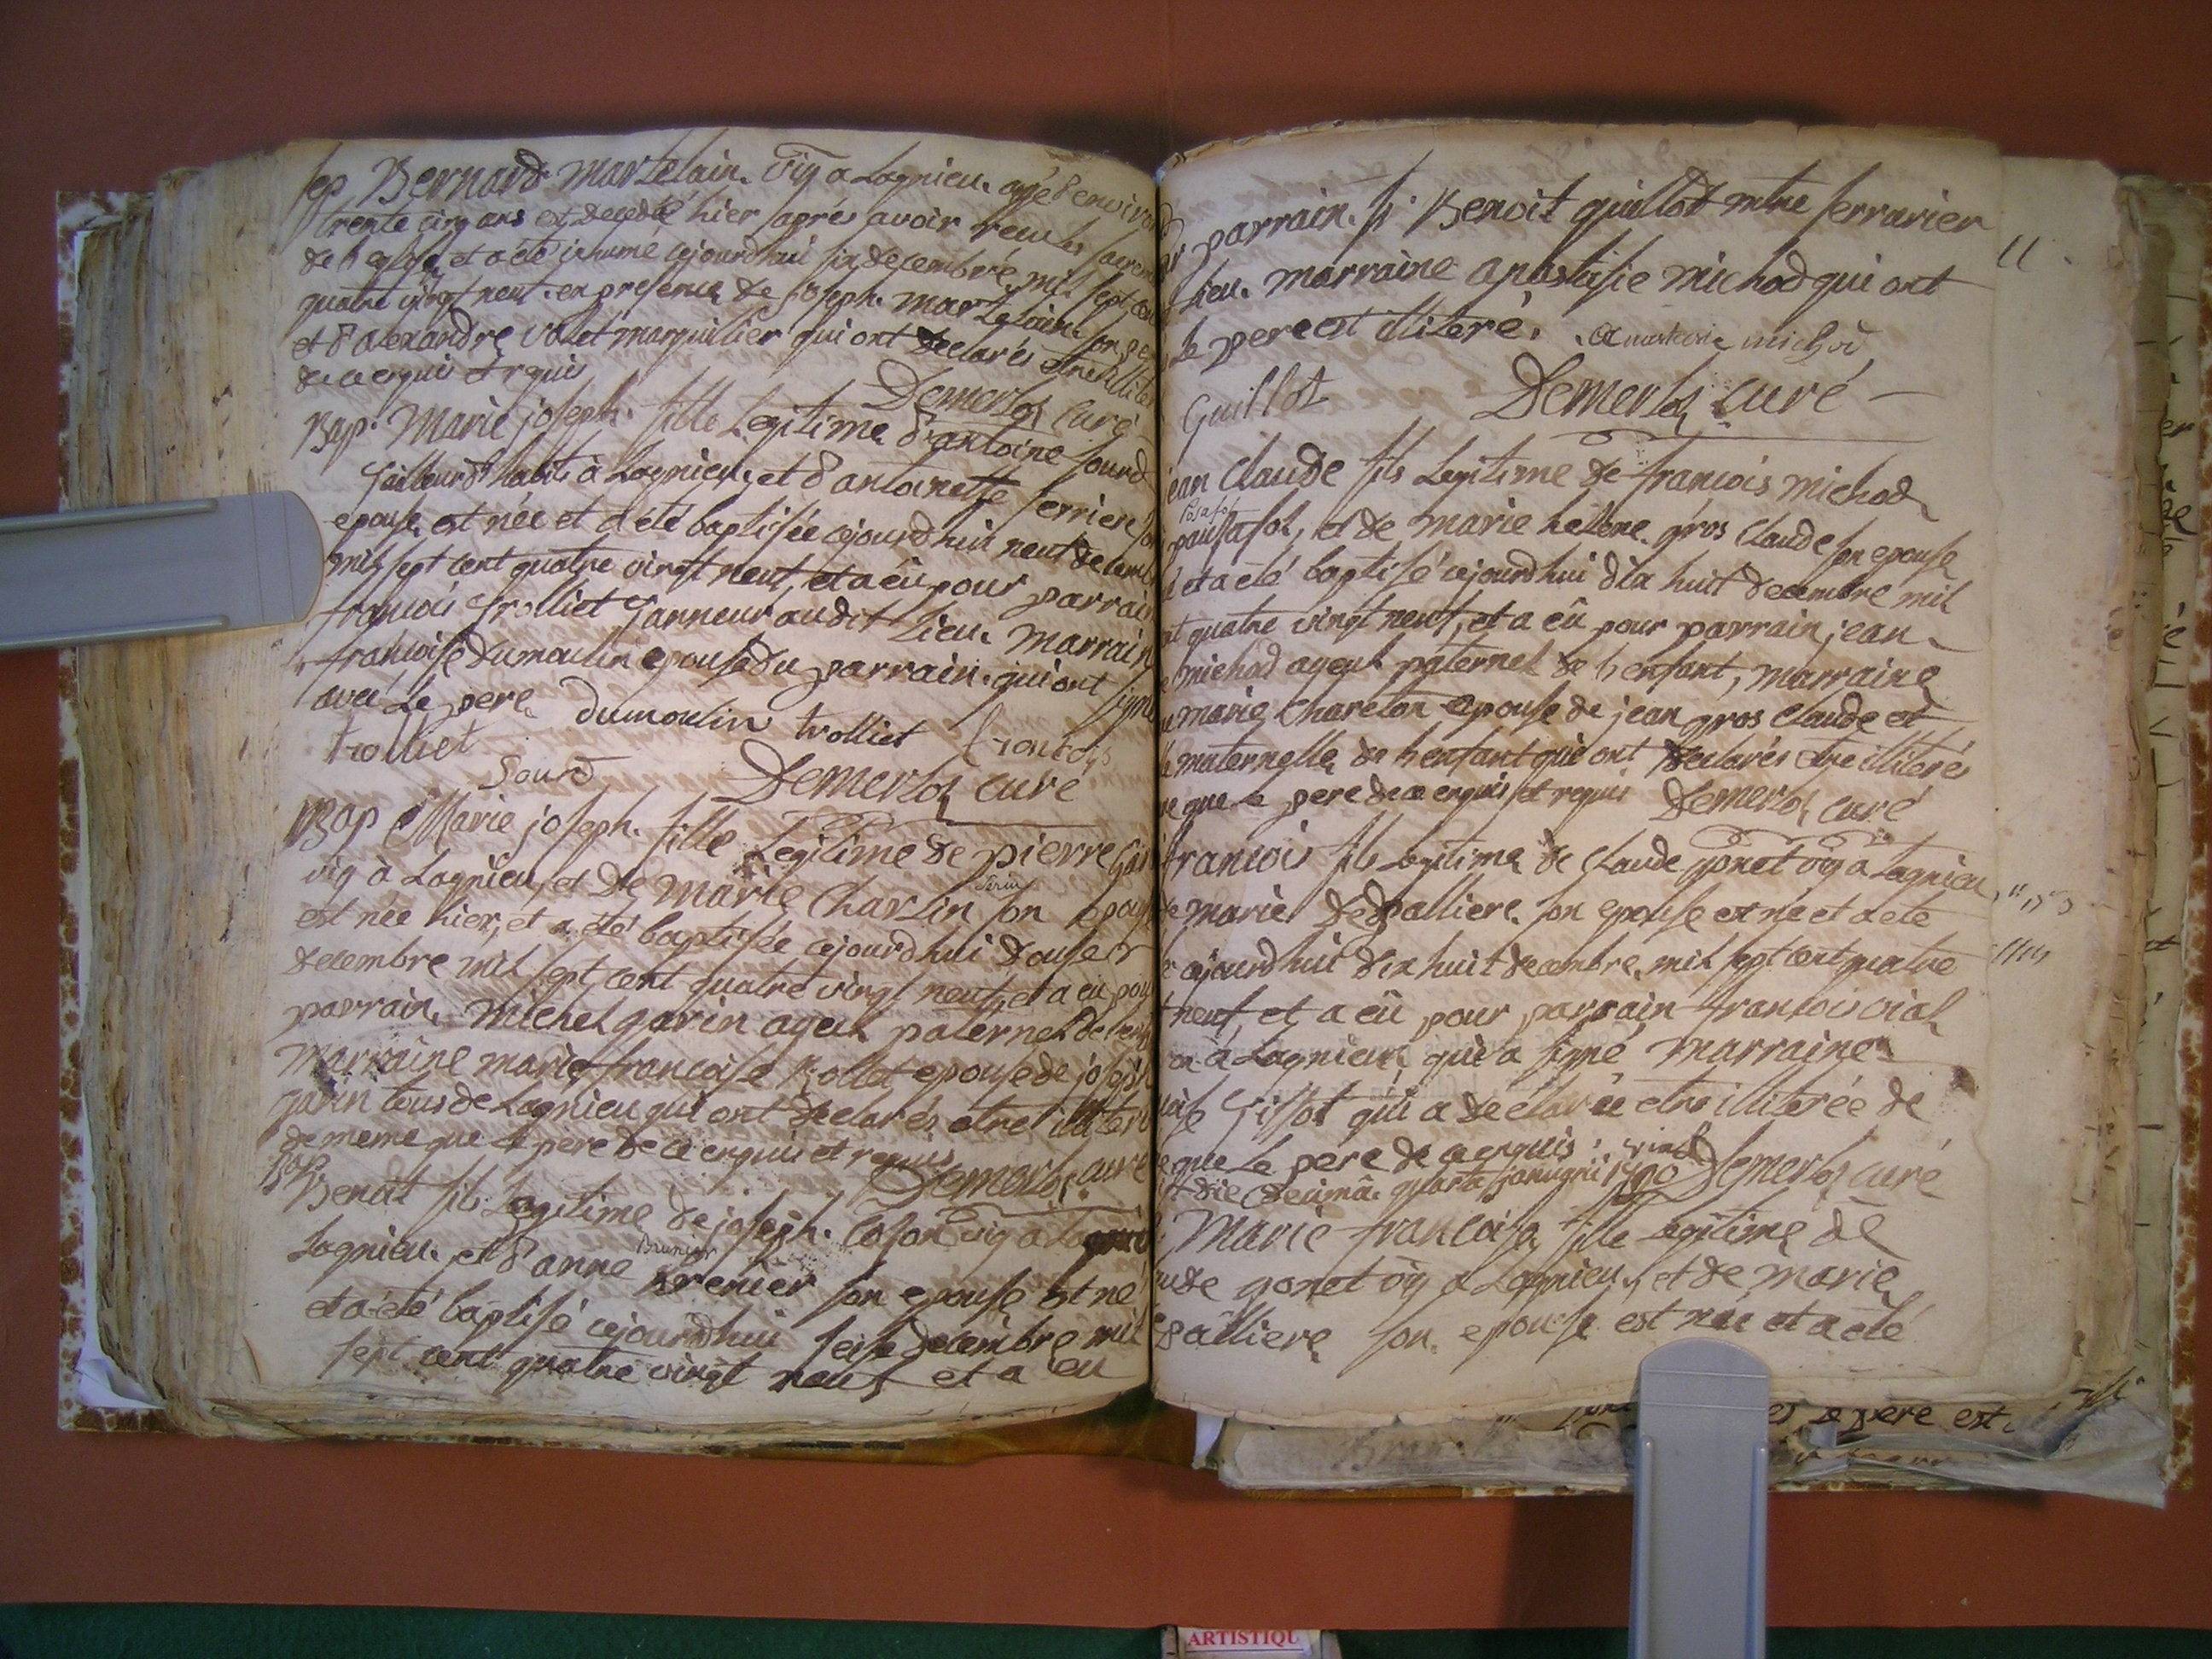 sep Bernard martelain. vig a Lagnieu. agé d'environ
trente cinq ans est decedé hier aprés avoir recu les sacrem
de l'eglise et a été inhumé cejourdhui six decembre mil sept cen
quatre vingt neuf. en presence de joseph. martelain. son per
et d'alexandre valet marguillier qui ont declarés etre illiter
de ce enquis et requis
Demerloz curé
Bap. Marie joseph. fille Legitime d'antoine sourd
tailleur d' habits à Lagnieu, et d'antoinette ferriere son
epouse est née et a été baptisée cejourdhui neuf decemb
mil sept cent quatre vingt neuf, et a eû pour parrain
francois trolliet tanneur audit Lieu. marrain
francoise dumoulin epouse du parrain. qui ont signé
avec Le pere dumoulin trolliet francois
trolliet
sourd Demerloz curé
Bap Marie joseph. fille Legitime de pierre Gari
vig à Lagnieu, et de Marie Charlin son epouse
est née hier, et a été baptisée cejourdhui douse
decembre mil sept cent quatre vingt neuf, et a eû pour
parrain. michel garin ayeul paternel de l'enf
marraine marie francoise rollet epouse de joseph
garin tous de Lagnieu qui ont declarés etre illiter
de meme que le pere de ce enquis et requis
Demerloz curé
Bap
Benoit fils Legitime de joseph. vig a
Brunier
Lagnieu. et d'anne brenier son epouse est né
et a été baptisé cejourdhui seise decembre mil
sept cent quatre vingt neuf et a eu
parrain. sr Benoit guillot mtre serrurier
Lieu. marraine anastasie michod qui ont
le pere est illiteré. michod
Guillot Demerloz curé
11
jean Claude fils Legitime de francois michod
posafol
pausafol, et de marie helene. gros Claude son epouse
et a été baptisé cejourdhui dix huit decembre mil
nt quatre vingt neuf, et a eû pour parrain jean
michod ayeul paternel de l'enfant, marraine
marie Chareton epouse de jean gros Claude et
maternelle de l'enfant qui ont declarés etre illiterés
que le pere de ce enquis et requis Demerloz curé
francois fils legitime de Claude gonet vig a Lagnieu
marie depalliere. son epouse est né et a eté
cejourdhui dix huit decembre. mil sept cent quatre
neuf, et a eû pour parrain francois vial
a Lagnieu, qui a signé marraine
Gissot qui a declarée etre illiterée de
que Le pere de ce enquis. vial
die decimâ. quarta januarii 1790 Demerloz curé
Marie francoise fille Legitime de
ude gonet vig a Lagnieu, et de marie
palliere son epouse est née et a eté
le pere est